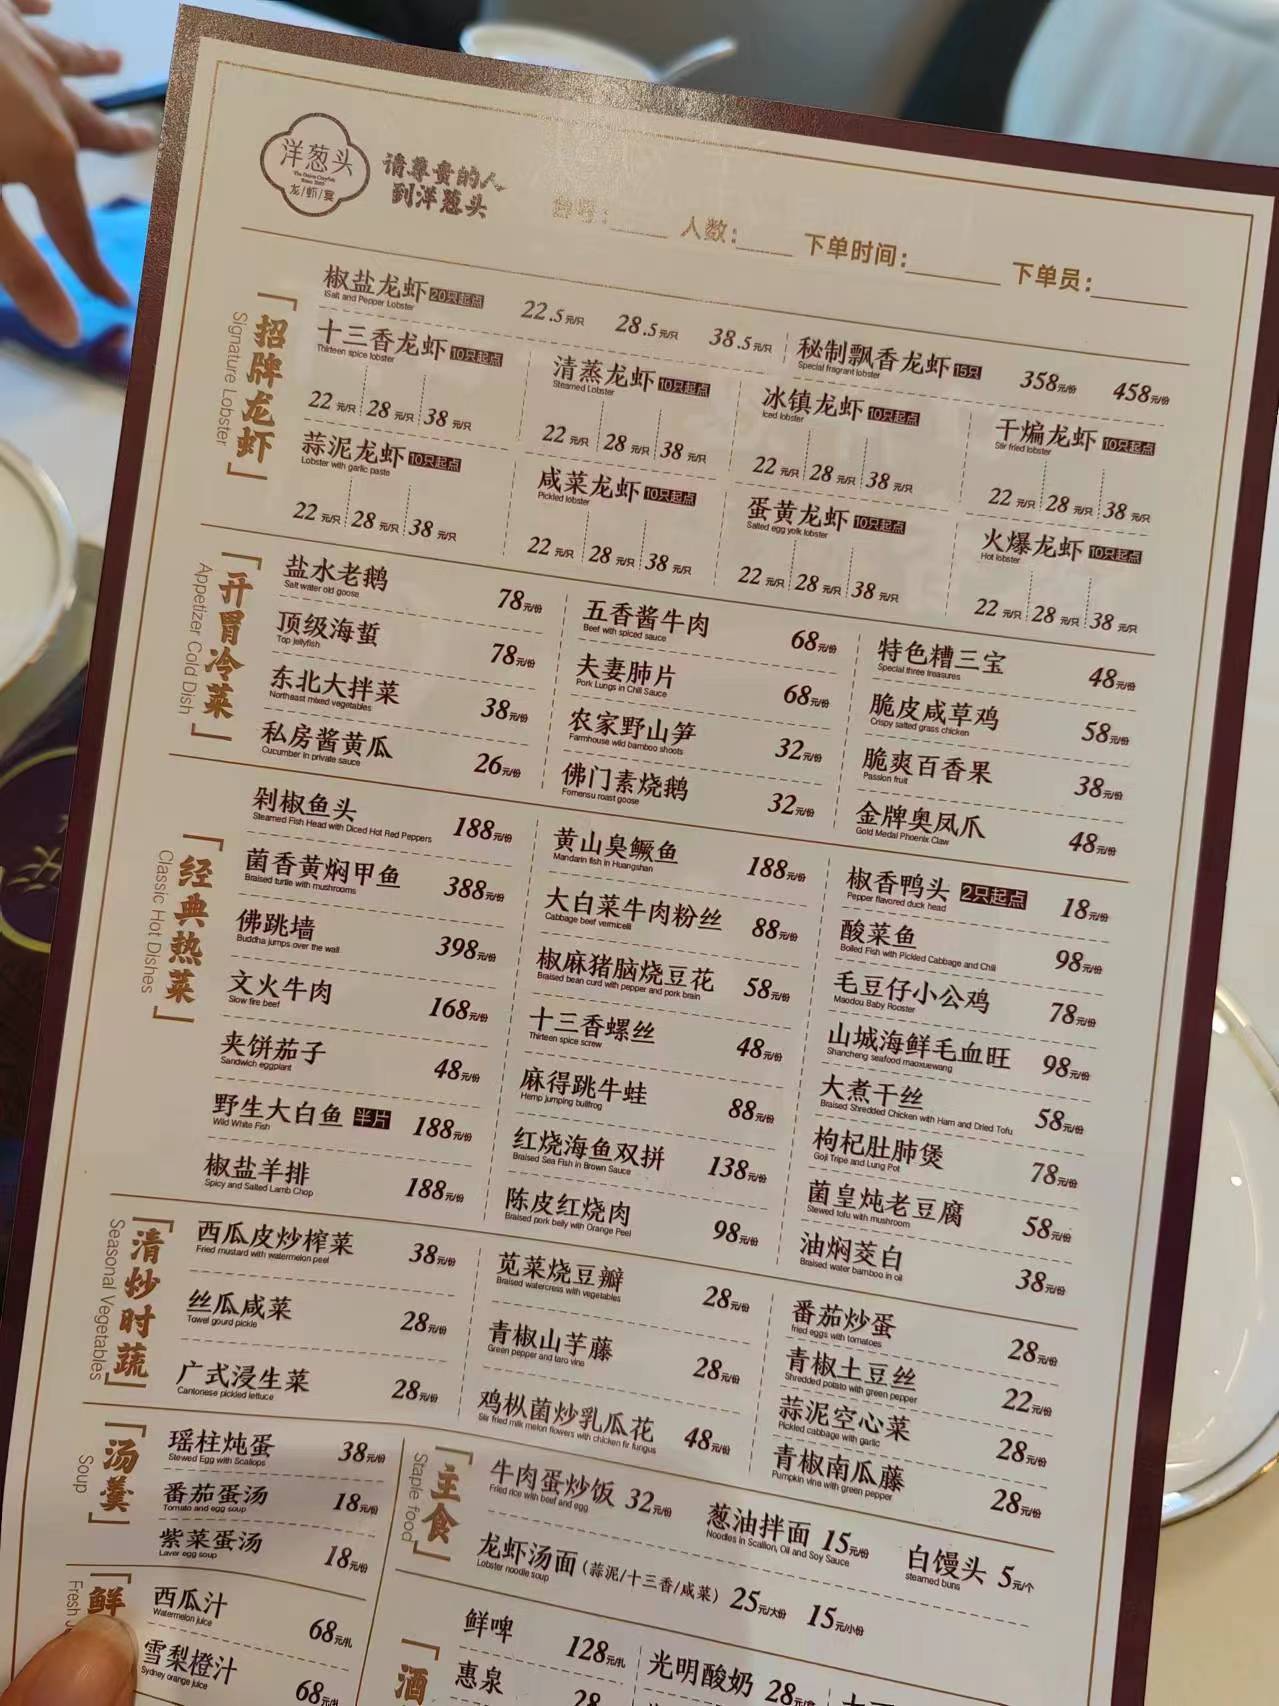 洋葱头
The Onion Crayfish
Since 2002
龙/虾/宴
请尊贵的人
到洋葱头
台号:
人数:
下单时间:
下单员:
「招牌龙虾」
Signature Lobster
椒盐龙虾 20只起点 22.5元/只 28.5元/只 38.5元/只
lSalt and Pepper Lobster
秘制飘香龙虾 15只 358元/份 458元/份
Special fragrant lobster
十三香龙虾 10只起点
Thirteen spice lobster
22元/只 28元/只 38元/只
清蒸龙虾 10只起点
Steamed Lobster
22元/只 28元/只 38元/只
冰镇龙虾 10只起点
Iced lobster
22元/只 28元/只 38元/只
干煸龙虾 10只起点
Stir fried lobster
22元/只 28元/只 38元/只
蒜泥龙虾 10只起点
Lobster with garlic paste
22元/只 28元/只 38元/只
咸菜龙虾 10只起点
Pickled lobster
22元/只 28元/只 38元/只
蛋黄龙虾 10只起点
Salted egg yolk lobster
22元/只 28元/只 38元/只
火爆龙虾 10只起点
Hot lobster
22元/只 28元/只 38元/只
「开胃冷菜」
Appetizer Cold Dish
盐水老鹅 78元/份
Salt water old goose
顶级海蜇 78元/份
Top jellyfish
东北大拌菜 38元/份
Northeast mixed vegetables
私房酱黄瓜 26元/份
Cucumber in private sauce
五香酱牛肉 68元/份
Beef with spiced sauce
夫妻肺片 68元/份
Pork Lungs in Chili Sauce
农家野山笋 32元/份
Farmhouse wild bamboo shoots
佛门素烧鹅 32元/份
Fomensu roast goose
特色糟三宝 48元/份
Special three treasures
脆皮咸草鸡 58元/份
Crispy salted grass chicken
脆爽百香果 38元/份
Passion fruit
金牌奥凤爪 48元/份
Gold Medal Phoenix Claw
「经典热菜」
Classic Hot Dishes
剁椒鱼头 188元/份
Steamed Fish Head with Diced Hot Red Peppers
菌香黄焖甲鱼 388元/份
Braised turtle with mushrooms
佛跳墙 398元/份
Buddha jumps over the wall
文火牛肉 168元/份
Slow fire beef
夹饼茄子 48元/份
Sandwich eggplant
野生大白鱼 半片 188元/份
Wild White Fish
椒盐羊排 188元/份
Spicy and Salted Lamb Chop
黄山臭鳜鱼 188元/份
Mandarin fish in Huangshan
大白菜牛肉粉丝 88元/份
Cabbage beef vermicelli
椒麻猪脑烧豆花 58元/份
Braised bean curd with pepper and pork brain
十三香螺丝 48元/份
Thirteen spice screw
麻得跳牛蛙 88元/份
Hemp jumping bullfrog
红烧海鱼双拼 138元/份
Braised Sea Fish in Brown Sauce
陈皮红烧肉 98元/份
Braised pork belly with Orange Peel
椒香鸭头 2只起点 18元/份
Pepper flavored duck head
酸菜鱼 98元/份
Boiled Fish with Pickled Cabbage and Chili
毛豆仔小公鸡 78元/份
Maodou Baby Rooster
山城海鲜毛血旺 98元/份
Shancheng seafood maoxuewang
大煮干丝 58元/份
Braised Shredded Chicken with Ham and Dried Tofu
枸杞肚肺煲 78元/份
Goji Tripe and Lung Pot
菌皇炖老豆腐 58元/份
Stewed tofu with mushroom
油焖茭白 38元/份
Braised water bamboo in oil
「清炒时蔬」
Seasonal Vegetables
西瓜皮炒榨菜 38元/份
Fried mustard with watermelon peel
丝瓜咸菜 28元/份
Towel gourd pickle
广式浸生菜 28元/份
Cantonese pickled lettuce
苋菜烧豆瓣 28元/份
Braised watercress with vegetables
青椒山芋藤 28元/份
Green pepper and taro vine
鸡枞菌炒乳瓜花 48元/份
Stir fried milk melon flowers with chicken fir fungus
番茄炒蛋 28元/份
fried eggs with tomatoes
青椒土豆丝 22元/份
Shredded potato with green pepper
蒜泥空心菜 28元/份
Pickled cabbage with garlic
青椒南瓜藤 28元/份
Pumpkin vine with green pepper
「汤羹」
Soup
瑶柱炖蛋 38元/份
Stewed Egg with Scallops
番茄蛋汤 18元/份
Tomato and egg soup
紫菜蛋汤 18元/份
Laver egg soup
「主食」
Staple food
牛肉蛋炒饭 32元/份
Fried rice with beef and egg
葱油拌面 15元/份
Noodles in Scallion, Oil and Soy Sauce
白馒头 5元/个
steamed buns
龙虾汤面(蒜泥/十三香/咸菜) 25元/大份 15元/小份
Lobster noodle soup
「鲜
Fresh
西瓜汁 68元/扎
Watermelon juice
雪梨橙汁 68元/扎
Sydney orange juice
「酒
鲜啤 128元/扎
惠泉 28
光明酸奶 28元